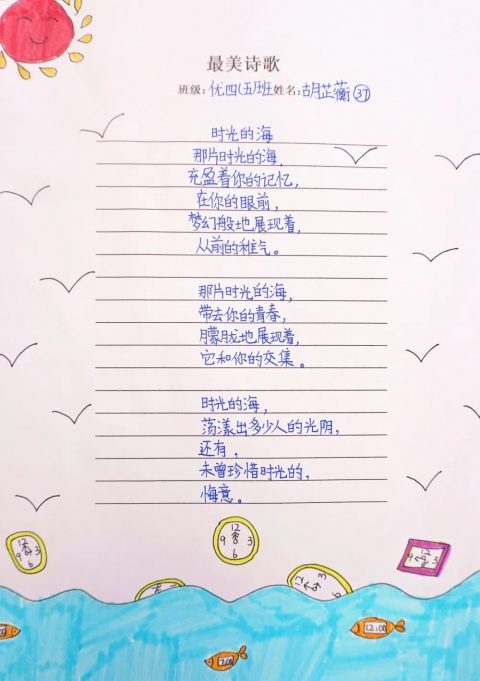 最美诗歌
班级：优四(五)班姓名：胡芷蘅37
时光的海
那片时光的海，
充盈着你的记忆，
在你的眼前，
梦幻般地展现着，
从前的稚气。
那片时光的海，
带去你的青春，
朦胧地展现着，
它和你的交集。
时光的海，
荡漾出多少人的光阴，
还有，
未曾珍惜时光的，
悔意。
12
9 3
6
12
9 3
6
12
3
9
12
9 3
6
12:00
7:00